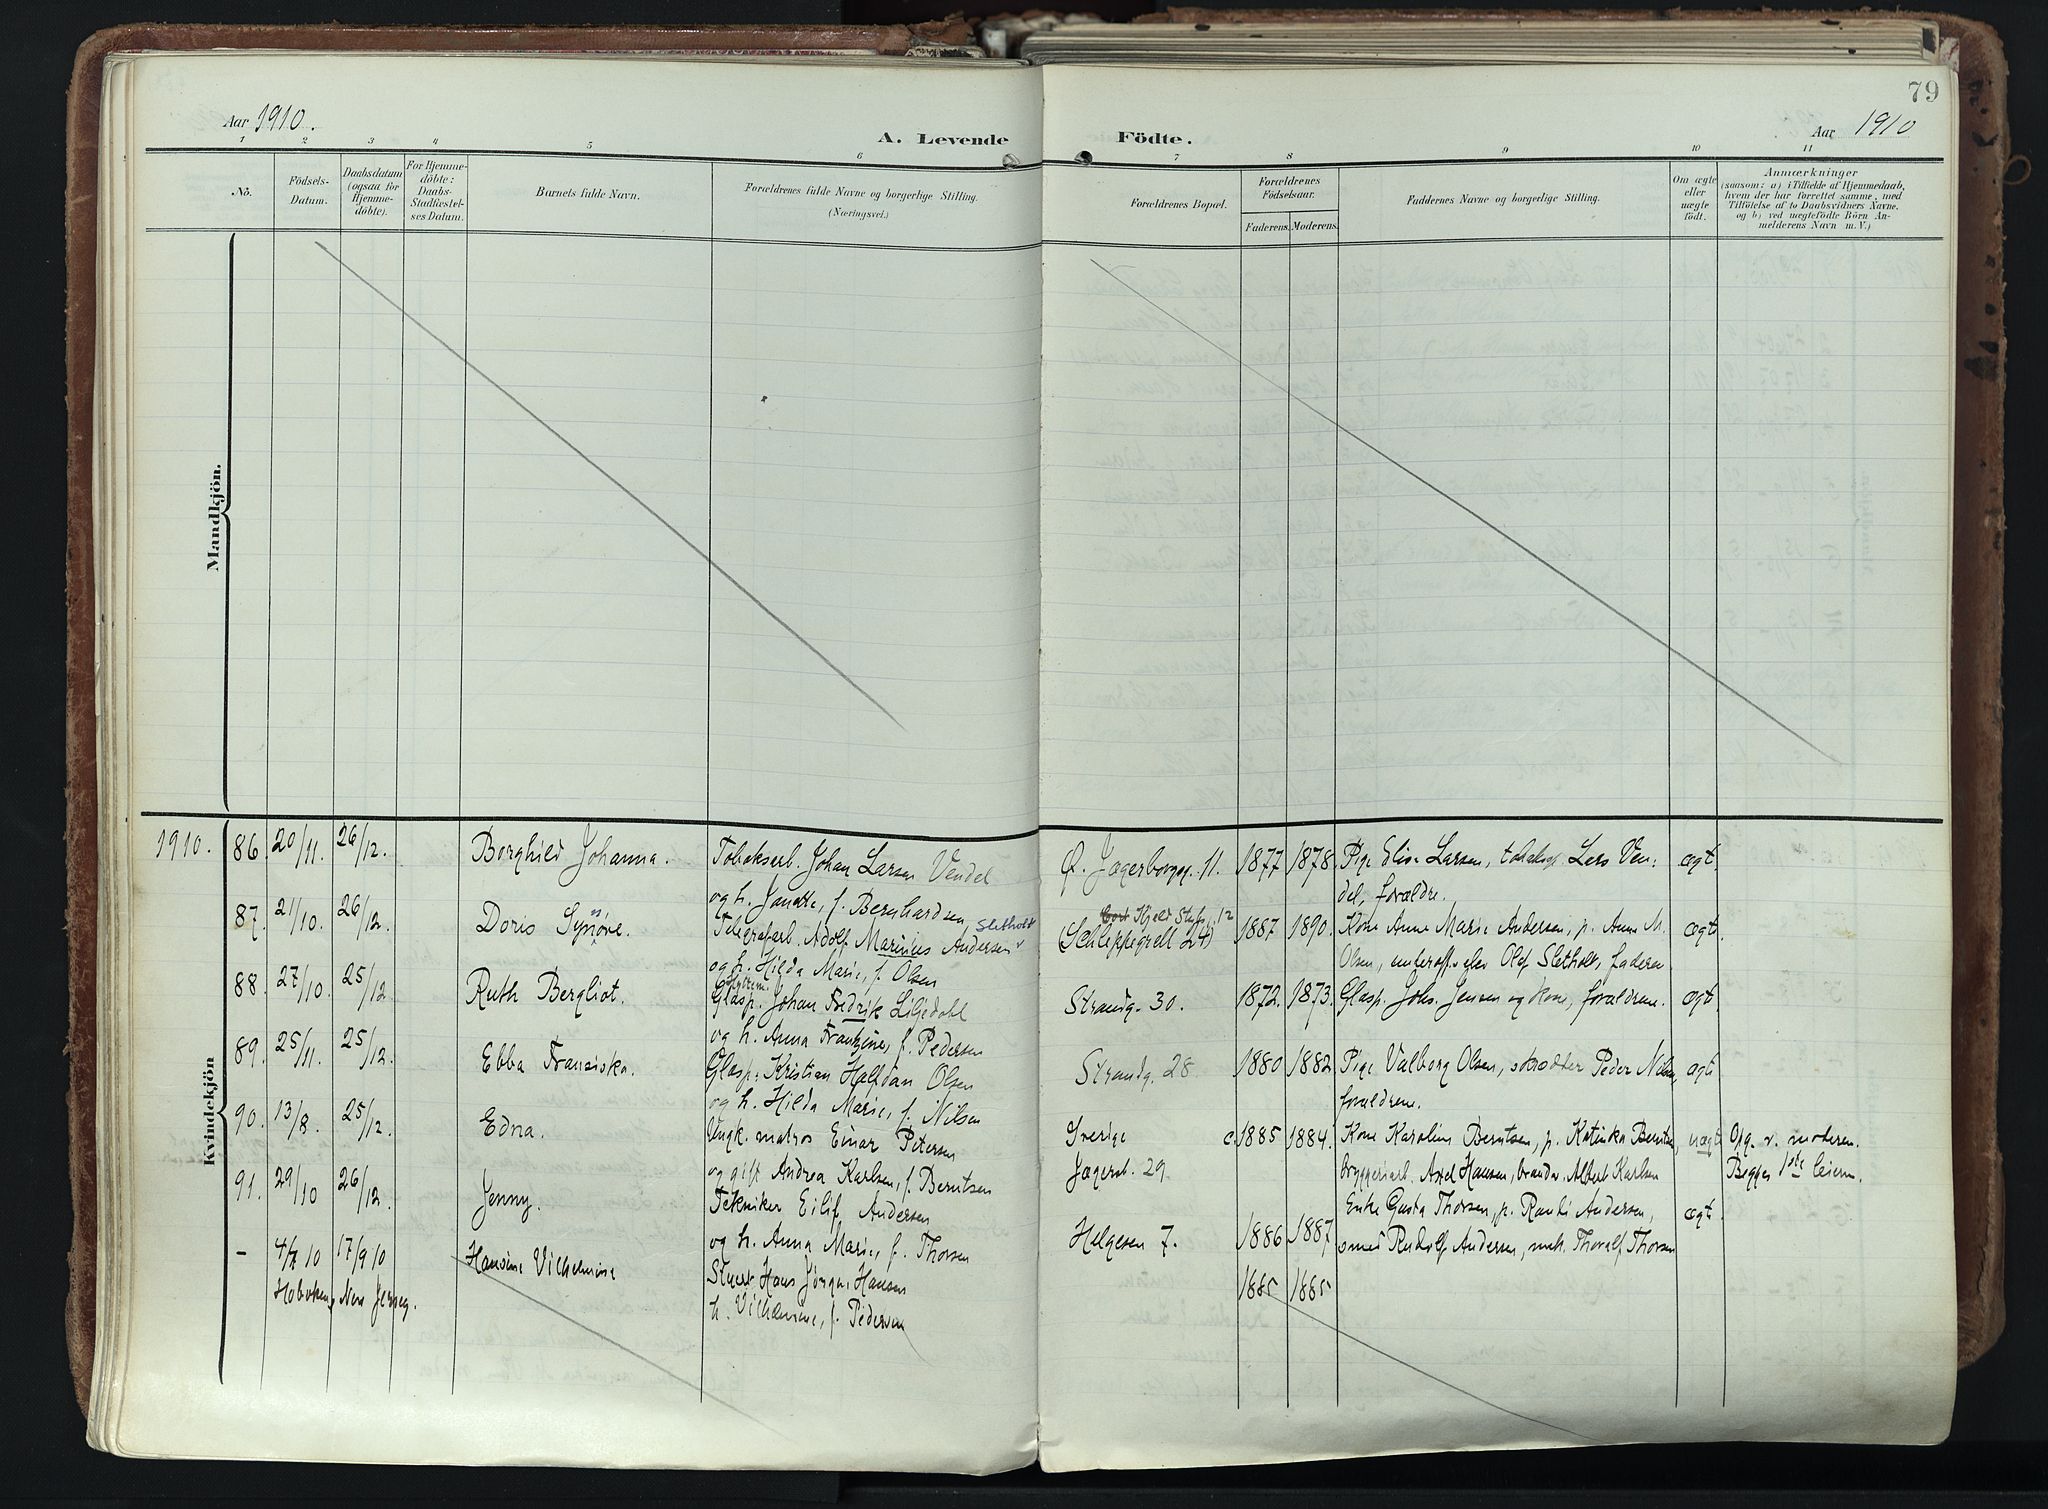 79
Aar 1910.
A. Levende Födte.
Aar 1910
1 2 3 4 5 6 7 8 9 10 11
No.
Födsels-Datum.
Daabsdatum (ogsaa for Hjemmedöbte).
For Hjemmedöbte: Daabs-Stadfæstelses Datum.
Barnets fulde Navn.
Forældrenes fulde Navne og borgerlige Stilling.
(Næringsvei.)
Forældrenes Bopæl.
Forældrenes Födselsaar.
Faderens. Moderens.
Faddernes Navne og borgerlige Stilling.
Om ægte eller uægte födt.
Anmærkninger
(saasom: a) i Tilfælde af Hjemmedaab, hvem der har forrettet samme, med Tilföielse af to Daabsvidners Navne. og b) ved uægtefödte Börn Anmelderens Navn m.V.)
Mandkjön.
Kvindekjön
1910. 86. 20/11. 26/12. Borghild Johanna. Tobaksarb. Johan Larsen Vendel
og h. f. Bernhardsen
Ø. Jægerborgg. 11. 1877 1878 Pige Elise Larsen, Lars Vendel, forældre. ægt.
87. 21/10. 26/12. Doris Synnøve. Telegrafarb. Adolf Marinius Andersen Sletholt
og h. Hilda Marie, f. Olsen
Kjeld Stubs 12
(Schleppegrell 24) 1887 1890. Kone Anne Marie Andersen, p. Anne M.
Olsen, underoff. elev Olaf Sletholt, faderen. ægt.
88. 27/10. 25/12 Ruth Bergliot. Glasp. Johan Fredrik Liljedahl
og h. Anna Frantzine, f. Pedersen
Strandg. 30. 1872. 1873. Glasp. Johs. Jensen og kone, forældrene. ægt.
89. 25/11. 25/12. Ebba Franciska. Glasp. Kristian Halfdan Olsen
og h. Hilda Marie, f. Nilsen
Strandg. 28 1880 1882 Pige Valborg Olsen, Peder Nilsen,
forældrene. ægt.
90. 13/8. 25/12. Edna. Ungk. matros Einar Petersen
og gift Andrea Karlsen, f. Berntsen
Sverige
Jægersb. 29 c. 1885 1884. Kone Karoline Berntsen, p. Katinka Berntsen,
bryggeriarb. Axel Hansen, Albert Karlsen uægt. Opg. v. moderen.
Begges 1ste leierm.
91. 29/10 26/12. Jenny. Tekniker Eilif Andersen
og h. Anna Marie, f. Thorsen
Helgesen 7. 1886 1887 Enke Gusta Thorsen, p. Randi Andersen,
smed Rudolf Andersen, Thoralf Thorsen ægt.
- 4/7 10 17/9 10 Hansine Vilhelmine Stuert Hans Jørgen Hansen
h. Vilhelmine, f. Pedersen
Hoboken, New Jersey. 1885 1885